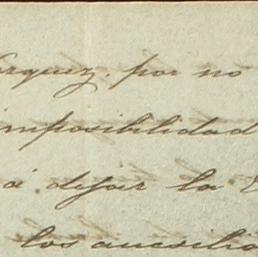 rquez. por no
imposibilidad
á dejar la
los ausilio